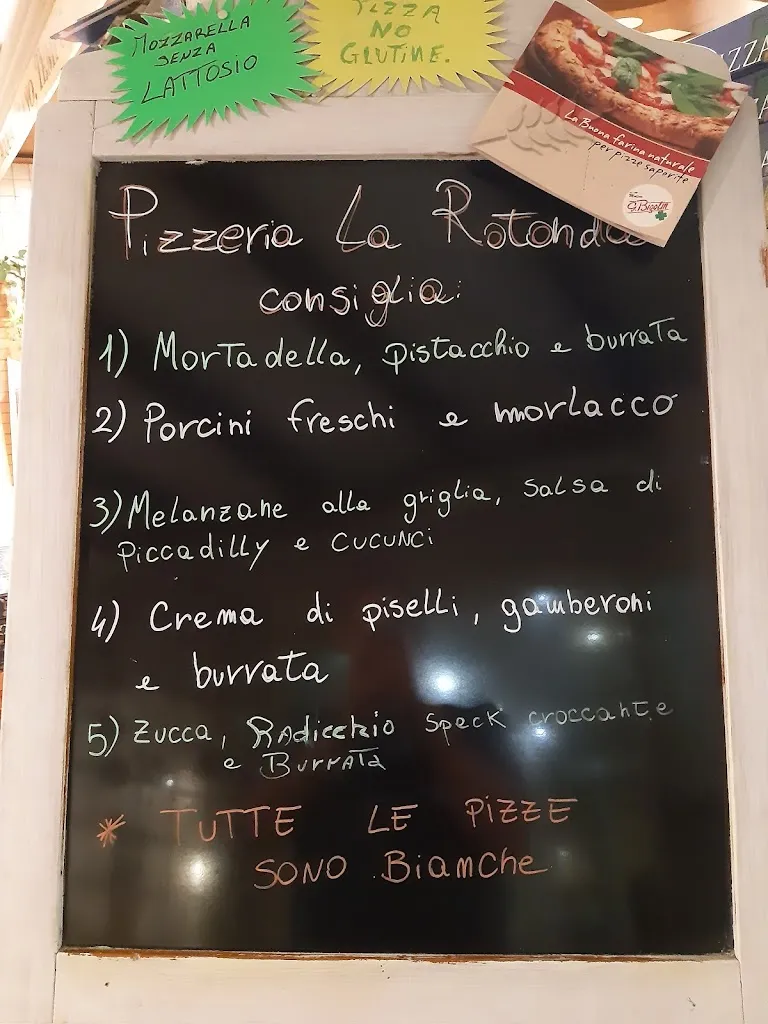 MOZZARELLA
SENZA
LATTOSIO
PIZZA
NO
GLUTINE.
La Buona farina naturale
per pizze saporite
G.Bigolin
Pizzeria La Rotonda
consiglia:
1) Mortadella, pistacchio e burrata
2) Porcini freschi e morlacco
3) Melanzane alla griglia, salsa di
Piccadilly e CUCUNCi
4) Crema di piselli, gamberoni
e burrata
5) Zucca, Radicchio Speck croccante
e BurraTa
* TUTTE LE PiZZE
SONO Bianche